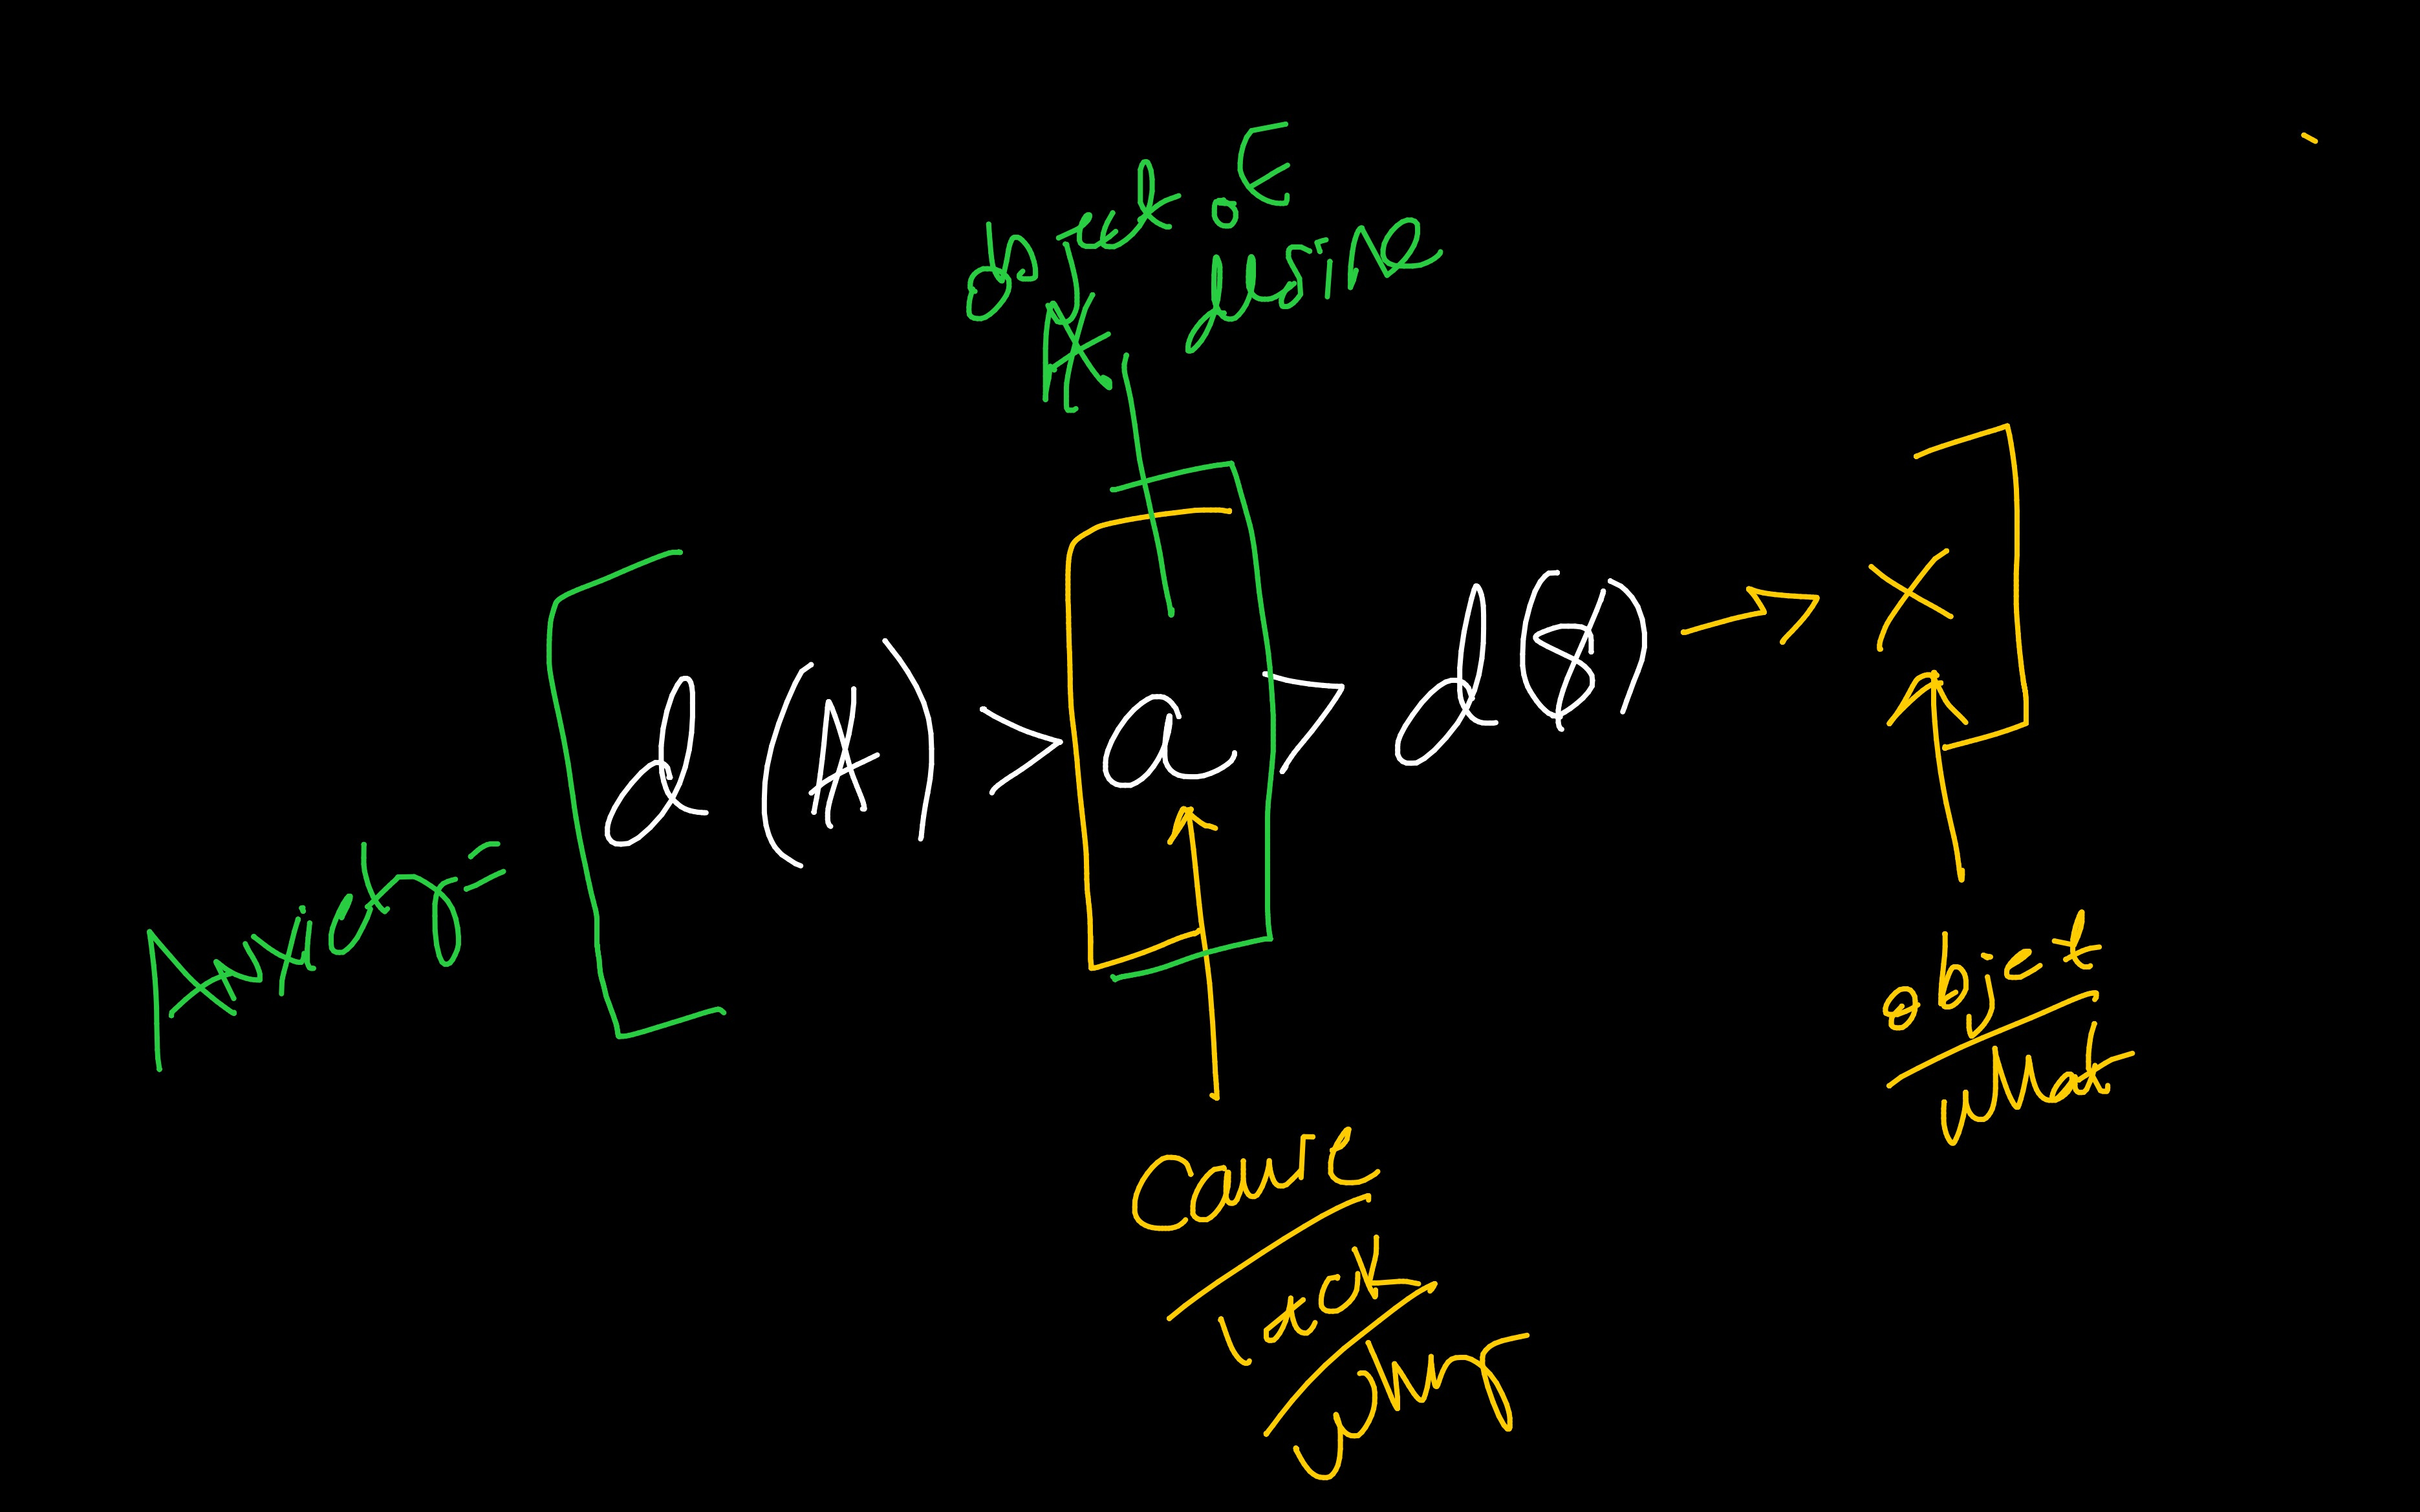 object of
A̸ desire
Anxiety = [ d(A̸) > a > d($) → x ]
cause
lack
why
object
what